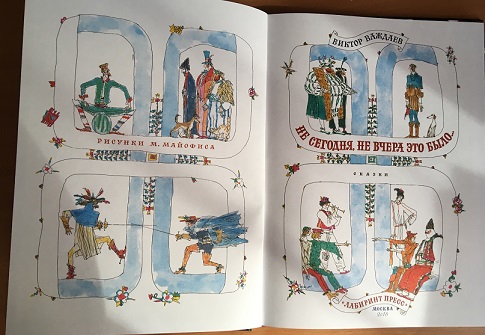 РИСУНКИ М. МАЙОФИСА
ВИКТОР ВАЖДАЕВ
НЕ СЕГОДНЯ, НЕ ВЧЕРА ЭТО БЫЛО...
СКАЗКИ
«ЛАБИРИНТ ПРЕСС»
МОСКВА